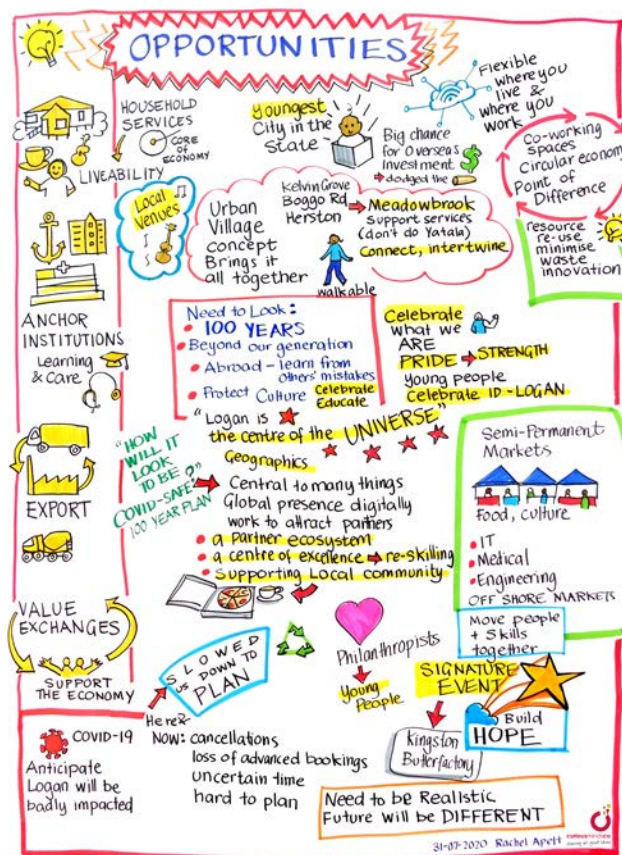 OPPORTUNITIES
HOUSEHOLD
SERVICES
CORE
OF
ECONOMY
LIVEABILITY
Youngest
City in the
State
Big chance
for Overseas
Investment
dodged the
Flexible
where you
live &
where you
work
Co-working
spaces
Circular economy
Point of
Difference
resource
re-use
minimise
waste
innovation
Local
Venues
Urban
Village
concept
Brings it
all together
Kelvin Grove
Boggo Rd
Herston
Meadowbrook
Support services
(don't do Yatala)
Connect, intertwine
walkable
ANCHOR
INSTITUTIONS
Learning
& Care
Need to Look:
100 YEARS
Beyond our generation
Abroad - learn from
others' mistakes
Protect Culture Celebrate
Educate
Celebrate
what we
ARE
PRIDE STRENGTH
Young people
Celebrate ID - LOGAN
"Logan is
the centre of the UNIVERSE"
"HOW
WILL IT
LOOK
TO BE?"
COVID-SAFE
100 YEAR PLAN
Geographics
Central to many things
Global presence digitally
work to attract partners
a partner ecosystem
a centre of excellence re-skilling
Supporting Local community
EXPORT
Semi-Permanent
Markets
Food, culture
IT
Medical
Engineering
OFF SHORE MARKETS
Move people
+ Skills
together
VALUE
EXCHANGES
SUPPORT
THE ECONOMY
SLOWED
US DOWN TO
PLAN
Philanthropists
Young
People
SIGNATURE
EVENT
Build
HOPE
Kingston
Butterfactory
COVID-19
Anticipate
Logan will be
badly impacted
Here &
Now: cancellations
loss of advanced bookings
uncertain time
hard to plan
Need to be Realistic
Future will be DIFFERENT
31-07-2020 Rachel Apelt